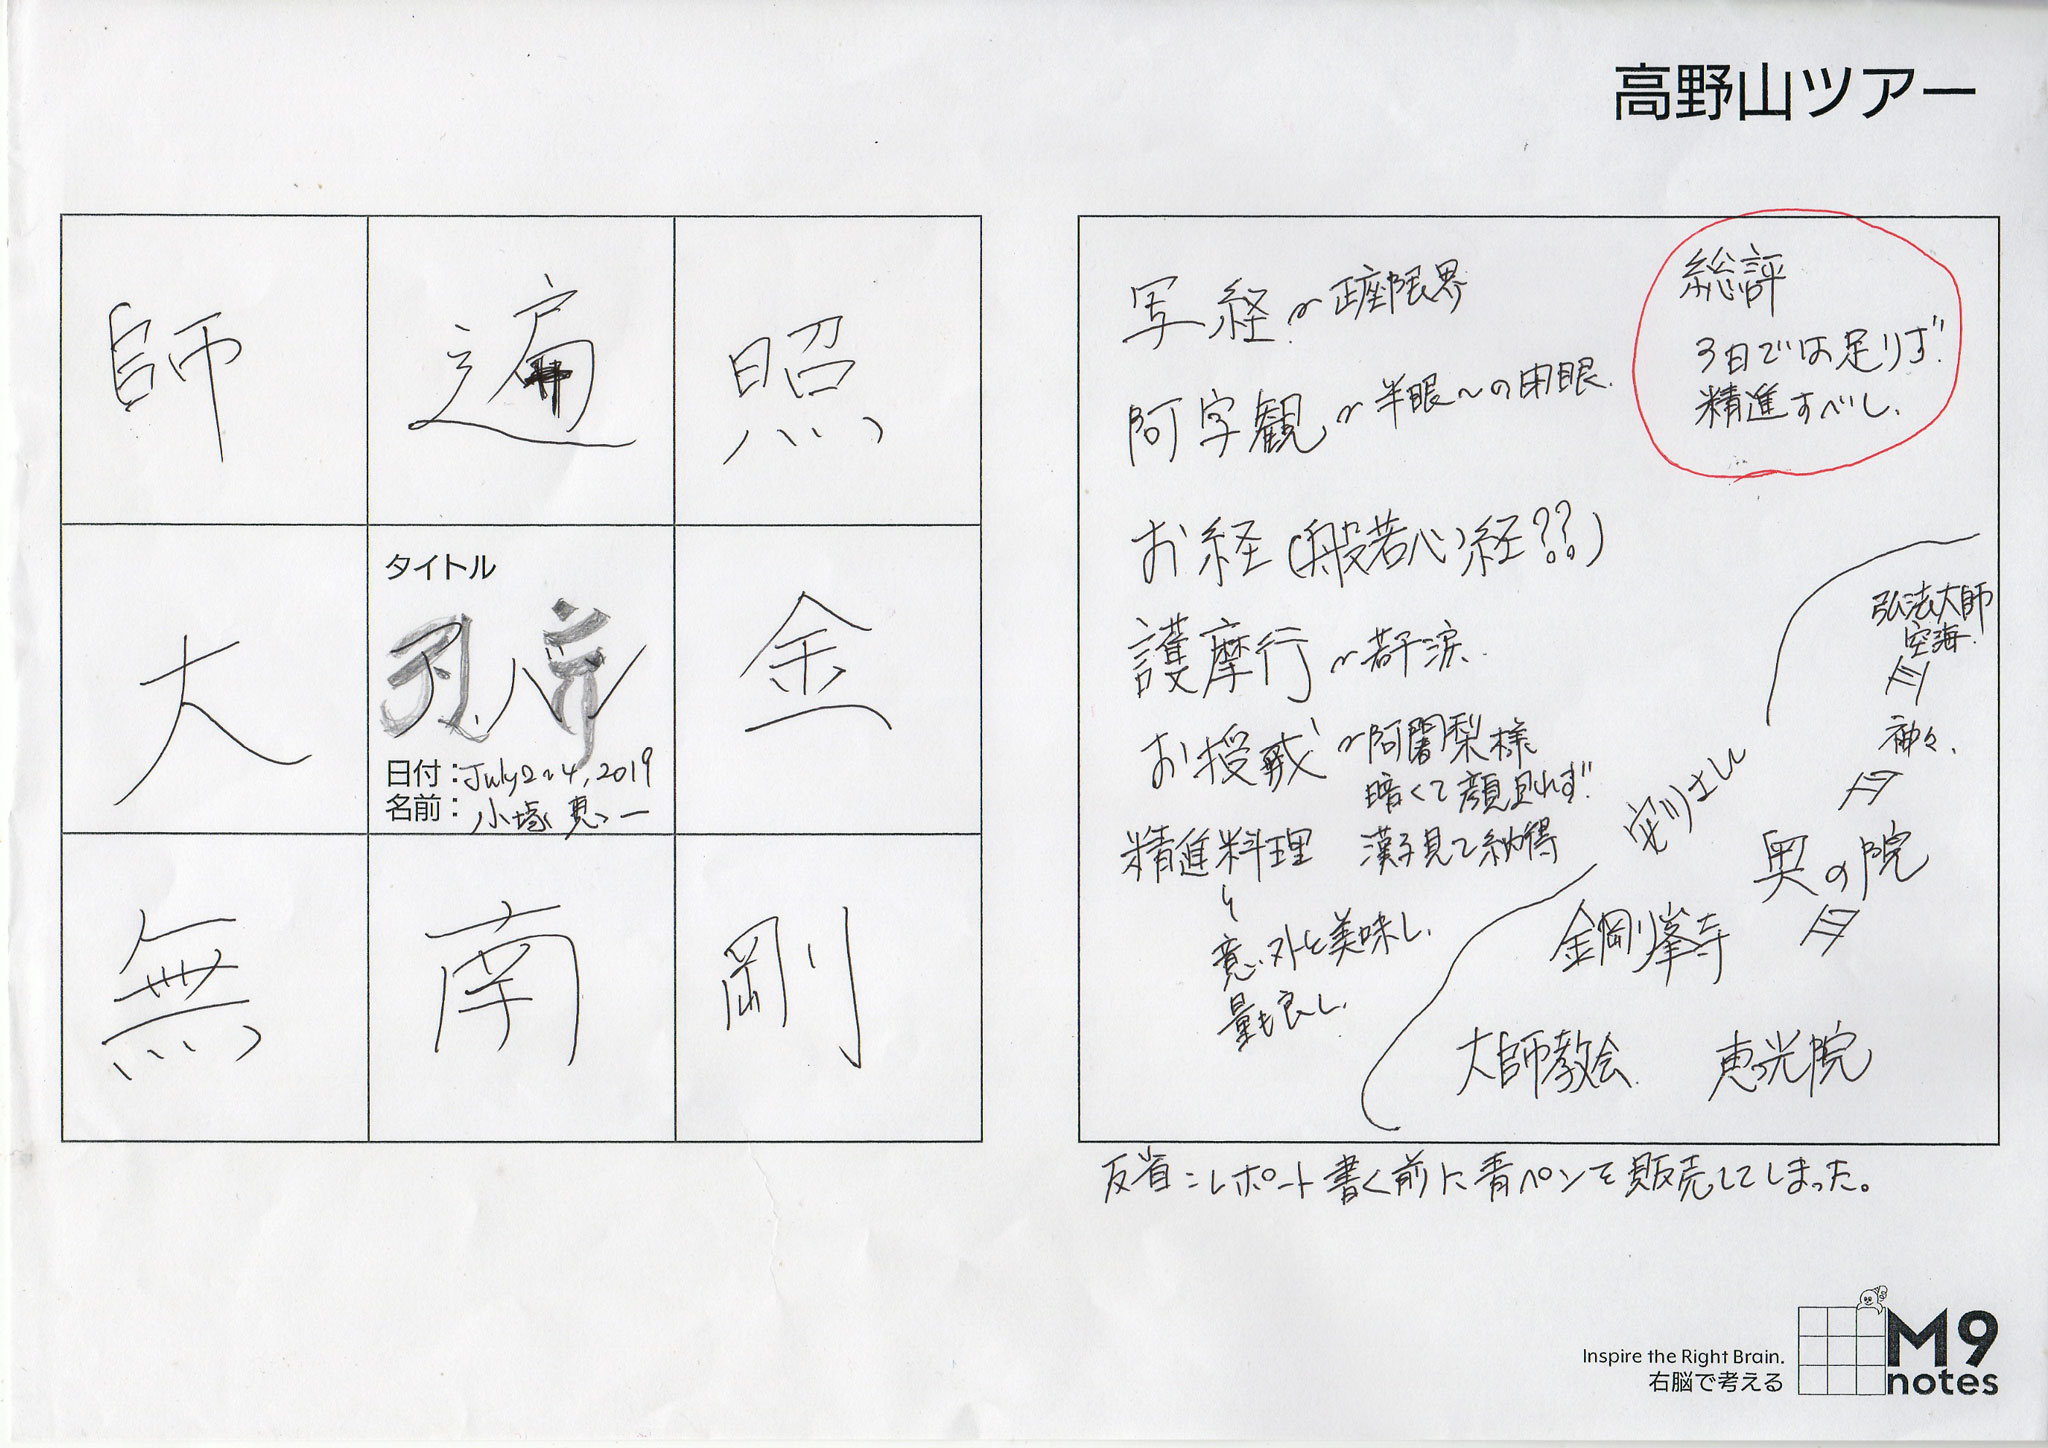 高野山ツアー
師 遍 照
大
タイトル
アバン
金
日付：July2〜4, 2019
名前：小塚 恵一
無 南 剛
写経〜正座限界
阿字観〜半眼〜の用眼.
お経(般若心経??)
護摩行〜若干涙.
お授戒〜阿闍梨様
暗くて顔見れず.
精進料理 漢字見て納得
意外と美味し.
量も良し.
総評
3日では足りず.
精進すべし.
弘法大師
空海.
神々.
奥の院
金剛峯寺
大師教会. 恵光院
反省：レポート書く前に青ペンを販売してしまった。
Inspire the Right Brain.
右脳で考える
M9
notes